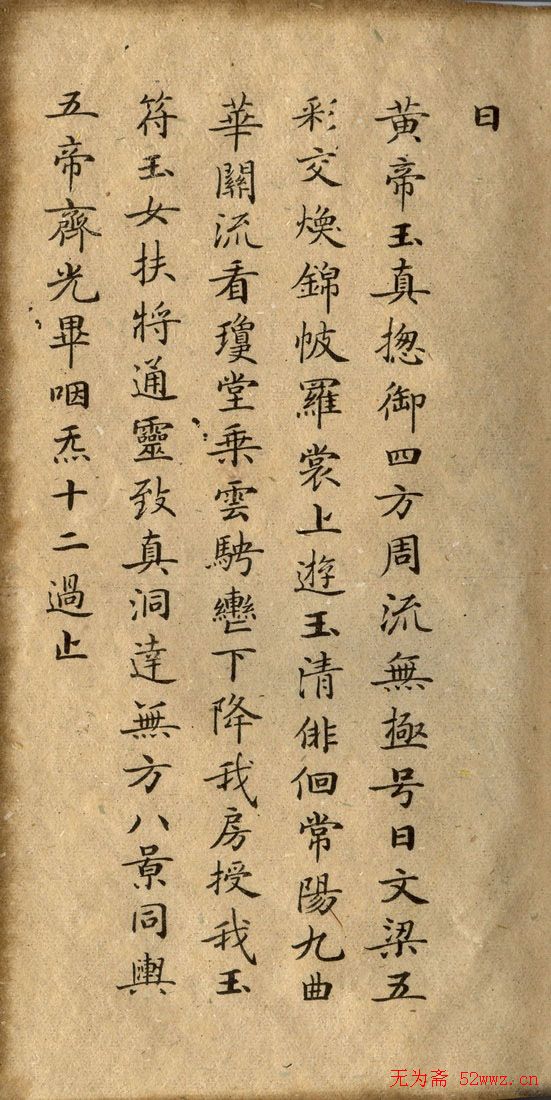 曰
黄帝玉真揔御四方周流無極号曰文梁五
彩交煥錦帔羅裳上遊玉清俳佪常陽九曲
華關流看瓊堂乗雲騁轡下降我房授我玉
符玉女扶將通靈致真洞達無方八景同輿
五帝齊光畢咽炁十二過止
无为斋 52wwz.cn